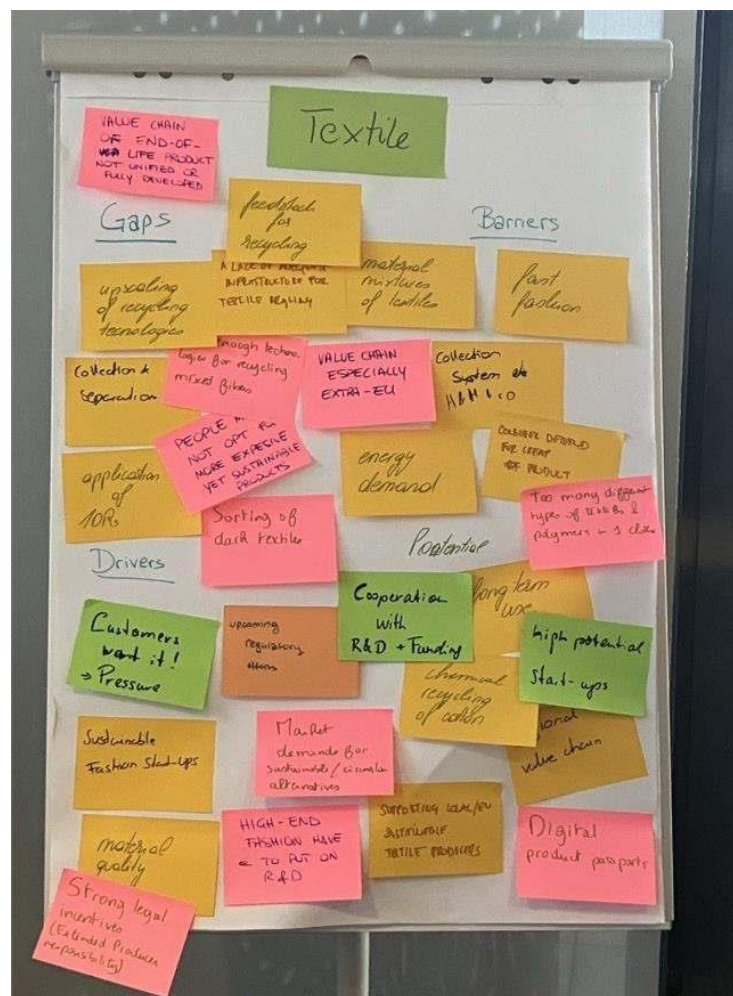 Textile
VALUE CHAIN
OF END-OF-
LIFE PRODUCT
NOT UNIFIED OR
FULLY DEVELOPED
Gaps
Barriers
feedstock
for
recycling
upscaling
of recycling
tecnologies
A LACK OF ADEQUATE
INFRASTRUCTURE FOR
TEXTILE
material
mixtures
of textiles
fast
fashion
Collection &
Separation
nough techno
logies for recycling
mixed fibers
VALUE CHAIN
ESPECIALLY
EXTRA-EU
Collection
System
PEOPLE
NOT OPT
MORE EXPESIVE
YET SUSTAINABLE
PRODUCTS
energy
demand
DEMAND
FOR CHEAP
PRODUCT
application
of
10Rs
Sorting of
dark textiles
Too many different
types of &
polymers
Drivers
Potential
Customers
want it!
→ Pressure
upcoming
regulatory
Cooperation
with
R&D + Funding
long term
use
high potential
Start-ups
chemical
recycling
of cotton
Sustainable
Fashion Start-ups
Market
demands for
sustainable/circular
alternatives
ional
value chain
material
quality
HIGH-END
FASHION HAVE
€ TO PUT ON
R&D
SUPPORTING LOCAL/EU
SUSTAINABLE
TEXTILE PRODUCERS
Digital
product passports
Strong legal
incentives
(Extended Producer
responsibility)